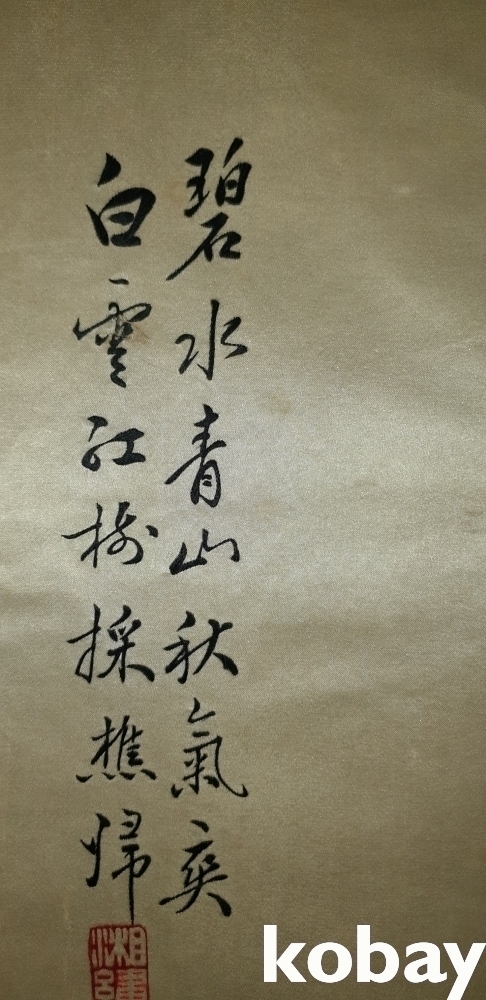 碧水青山秋氣爽
白雲紅樹採樵歸
湘
kobay